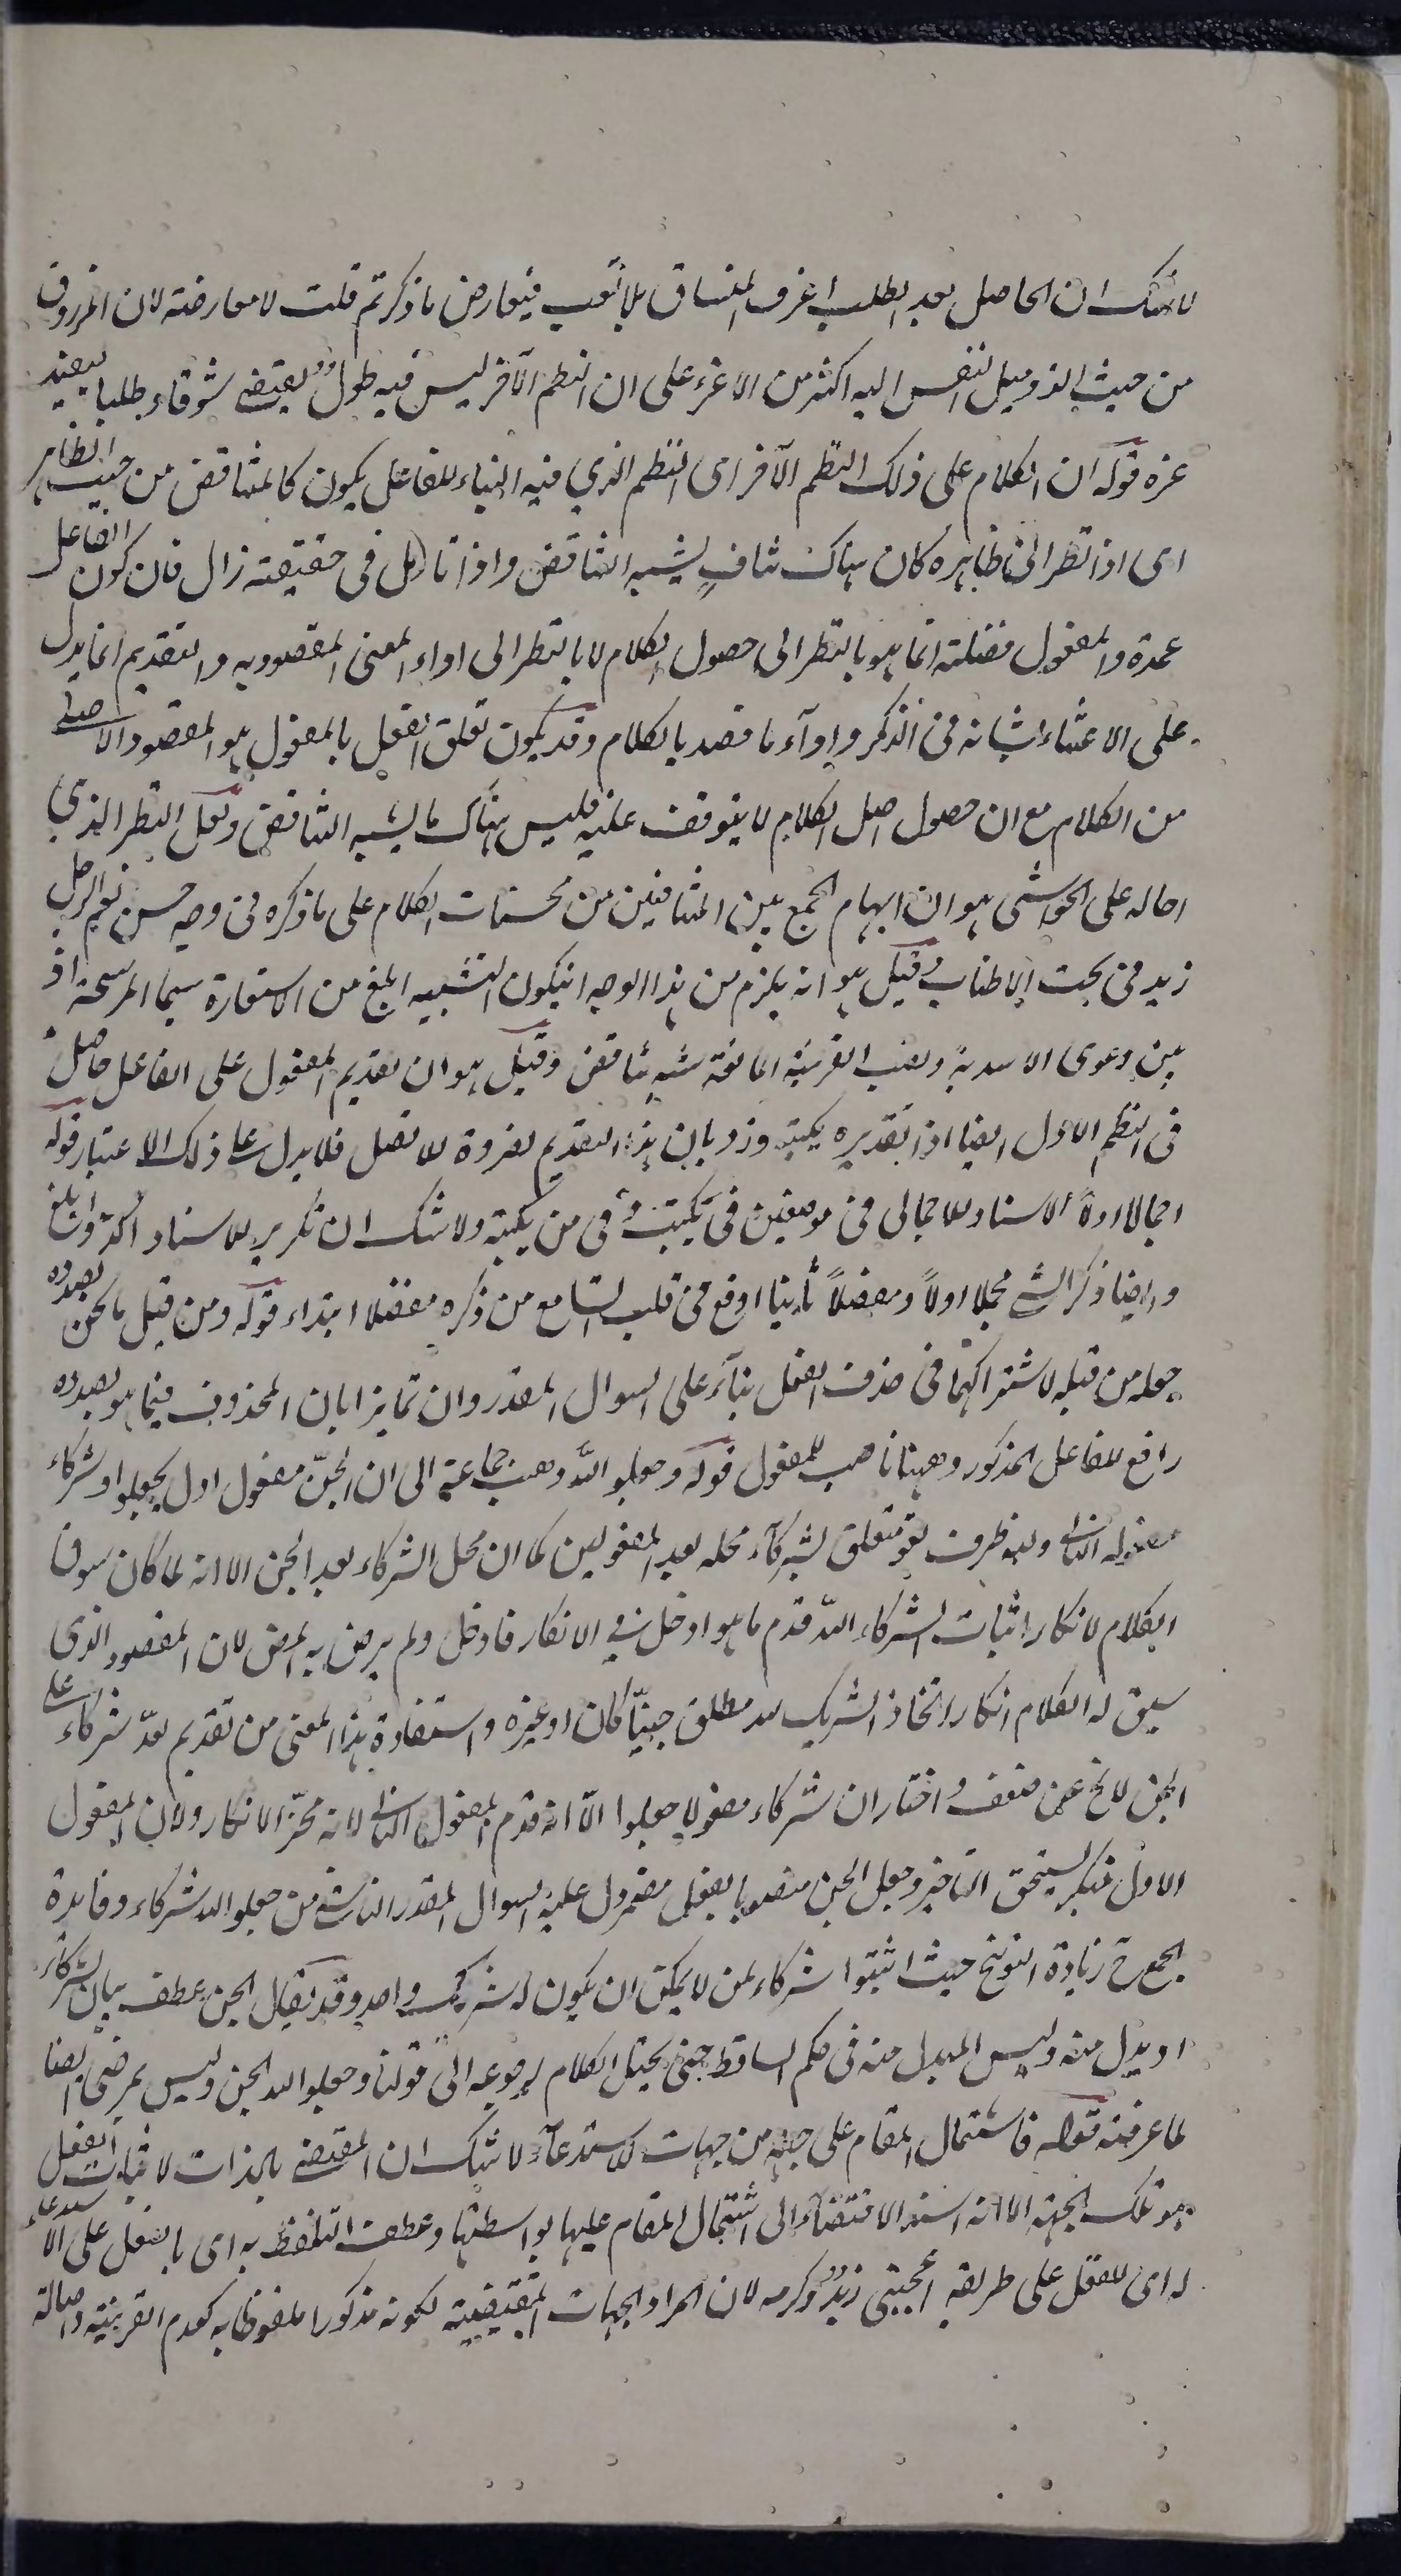 لا شك ان الحاصل بعد الطلب اعز من المنساق بلا تعب فيعارض ما ذكرتم قلت لا معارضة لان المرزوق
من حيث الذ وميل النفس اليه اكثر من الاعز على ان النظم الآخر ليس فيه طول يقتضى شوقا وطلبا يفيد
عزه قوله ان الكلام على ذلك النظم الآخر اى النظم الذي فيه البناء للفاعل يكون كالمتناقض من حيث الظاهر
اى اذا نظر الى ظاهره كان هناك تناف يشبه التناقض واذا تاءمل فى حقيقته زال فان كون الفاعل
عمدة والمفعول فضلة انما هو بالنظر الى حصول الكلام لا بالنظر الى اداء المعنى المقصود به والتقديم انما يدل
على الاعتناء بشانه فى الذكر واداء ما قصد بالكلام وقد يكون تعلق الفعل بالمفعول هو المقصود الاصلى
من الكلام مع ان حصول اصل الكلام لا يتوقف عليه فليس هناك ما يشبه التناقض ولعل النظر الذي
احاله على الحواشى هو ان ايهام الجمع بين المتنافيين من محسنات الكلام على ما ذكره فى وجه حسن نعم الرجل
زيد فى بحث الاطناب وقيل هو انه يلزم من هذا الوجه ان يكون التشبيه ابلغ من الاستعارة سيما المرشحة اذ
بين دعوى الاسدية ونصب القرينة المانعة شبه تناقض وقيل هو ان تقديم المفعول على الفاعل حاصل
فى النظم الاول ايضا اذ تقديره يبكيه ورد بان هذا التقديم لضرورة الاتصال فلا يدل على ذلك الاعتبار قوله
اجمالا اولا الاسناد الاجمالى فى موضعين فى ليبك وفى من يبكيه ولا شك ان تكرير الاسناد اكد وابلغ
وايضا ذكر الشئ مجملا اولاً ومفصلاً ثانيا اوقع فى قلب السامع من ذكره مفصلا ابتداء قوله ومن قبيل ما نحن بصدده
جعله من قبله لاشتراكهما فى حذف الفعل بناء على السوال المقدر وان تمايزا بان المحذوف فيما هو بصدده
رافع للفاعل المذكور وههنا ناصب للمفعول قوله وجعلوا لله ذهب جماعة الى ان الجن مفعول اول لجعلوا وشركاء
مفعوله الثانى ولله ظرف لغو متعلق بشركاء محله بعد المفعولين كما ان محل الشركاء بعد الجن الا انه لما كان سوق
الكلام لانكار اثبات الشركاء لله قدم ما هو ادخل فى الانكار فادخل ولم يرض به المص لان المقصود الذى
سيق له الكلام انكار اتخاذ الشريك لله مطلق جنيّا كان او غيره واستفادة هذا المعنى من تقديم لله شركاء على
الجن لا يخ عن ضعف واختار ان شركاء مفعولا جعلوا الّا انه قدم المفعول الثانى لانه محزّ الانكار ولان المفعول
الاول منكر يستحق التاخير وجعل الجن منصوبا بفعل مضمر دل عليه السوال المقدر الناشئ من جعلوا لله شركاء وفائدة
الجمع ح زيادة التوبيخ حيث اثبتوا شركاء لمن لا يمكن ان يكون له شريك واحد وقد يقال الجن عطف بيان لشركاء
او بدل منه وليس المبدل منه فى حكم الساقط حتى يختل الكلام لرجوعه الى قولنا وجعلوا لله الجن وليس بمرضى ايضا
لما عرفته قوله فاشتمال المقام على جهة من جهات الاستدعاء لا شك ان المقتضى بالذات لاثبات الفعل
هو تلك الجهة الا انه اسند الاقتضاء الى اشتمال المقام عليها بواسطتها وعطف التلفظ به اى بالفعل على الاستدعاء
له اى للفعل على طريقة اعجبنى زيد وكرمه لان المراد الجهات المقتضية لكونه مذكورا ملفوظا به كعدم القرينة واصالة